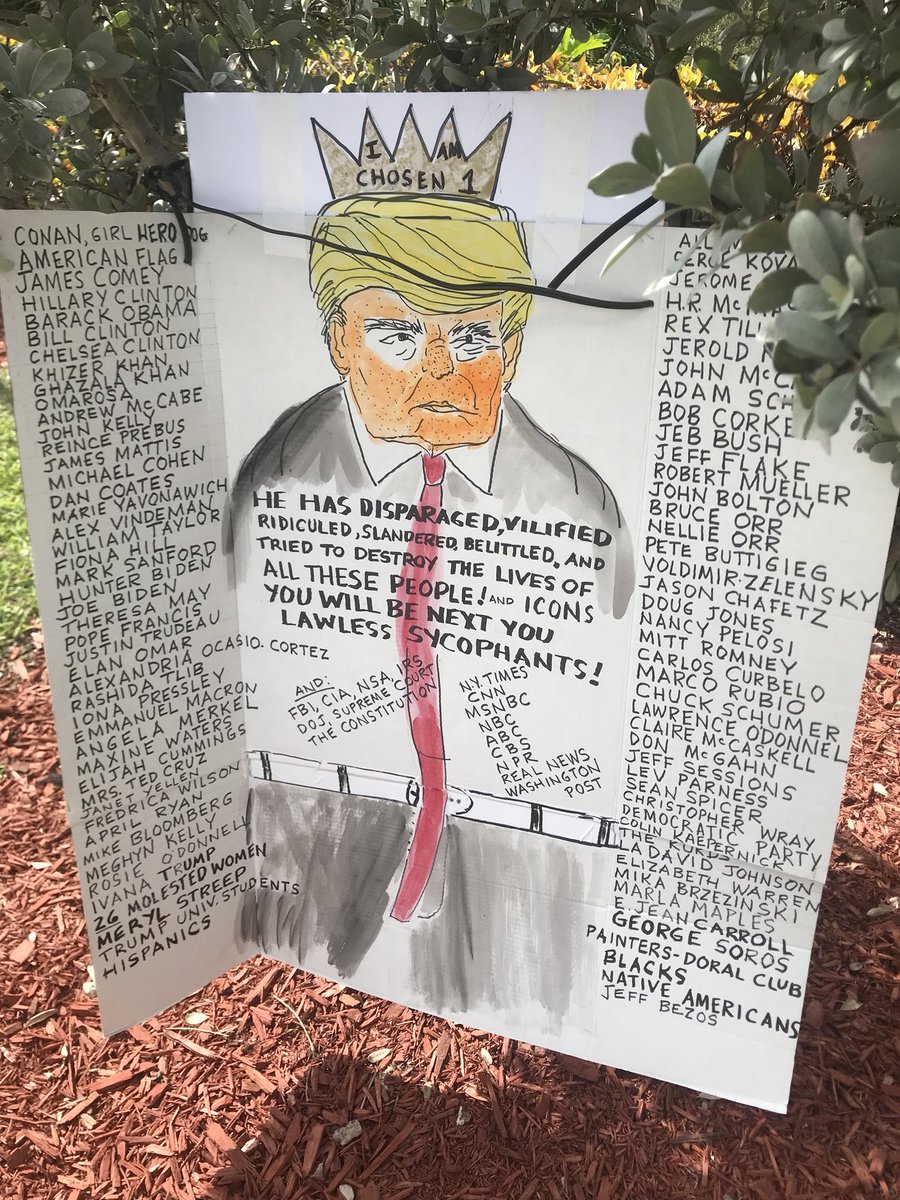 I AM
CHOSEN 1
CONAN, GIRL HERO DOG
AMERICAN FLAG
JAMES COMEY
HILLARY CLINTON
BARACK OBAMA
BILL CLINTON
CHELSEA CLINTON
KHIZER KHAN
GHAZALA KHAN
OMAROSA
ANDREW McCABE
JOHN KELLY
REINCE PREBUS
JAMES MATTIS
MICHAEL COHEN
DAN COATES
MARIE YAVONAWICH
ALEX VINDEMAN
WILLIAM TAYLOR
FIONA HILL
MARK SANFORD
HUNTER BIDEN
JOE BIDEN
THERESA MAY
POPE FRANCIS
JUSTIN TRUDEAU
ELAN OMAR
ALEXANDRIA OCASIO-CORTEZ
RASHIDA TLIB
IONA PRESSLEY
EMMANUEL MACRON
ANGELA MERKEL
MAXINE WATERS
ELIJAH CUMMINGS
MRS. TED CRUZ
JANET YELLEN
FREDRICA WILSON
APRIL RYAN
MIKE BLOOMBERG
MEGHYN KELLY
ROSIE O'DONNELL
IVANA TRUMP
26 MOLESTED WOMEN
MERYL STREEP
TRUMP UNIV. STUDENTS
HISPANICS
HE HAS DISPARAGED, VILIFIED
RIDICULED, SLANDERED, BELITTLED, AND
TRIED TO DESTROY THE LIVES OF
ALL THESE PEOPLE! AND ICONS
YOU WILL BE NEXT YOU
LAWLESS SYCOPHANTS!
AND:
FBI, CIA, NSA, IRS
DOJ, SUPREME COURT
THE CONSTITUTION
N.Y. TIMES
CNN
MSNBC
NBC
ABC
CBS
NPR
REAL NEWS
WASHINGTON
POST
ALL
SERGE
JEROME
H.R.
REX
JEROLD
JOHN
ADAM
BOB
JEB BUSH
JEFF FLAKE
ROBERT MUELLER
JOHN BOLTON
BRUCE ORR
NELLIE ORR
PETE BUTTIGIEG
VOLDIMIR-ZELENSKY
JASON CHAFETZ
DOUG JONES
NANCY PELOSI
MITT ROMNEY
CARLOS CURBELO
MARCO RUBIO
CHUCK SCHUMER
LAWRENCE O'DONNEL
CLAIRE McCASKELL
DON McGAHN
JEFF SESSIONS
LEV PARNESS
SEAN SPICER
CHRISTOPHER WRAY
DEMOCRATIC PARTY
COLIN KAEPERNICK
THE KURDS
LADAVID JOHNSON
ELIZABETH WARREN
MIKA BRZEZINSKI
MARLA MAPLES
E. JEAN CARROLL
GEORGE SOROS
PAINTERS-DORAL CLUB
BLACKS
NATIVE AMERICANS
JEFF BEZOS